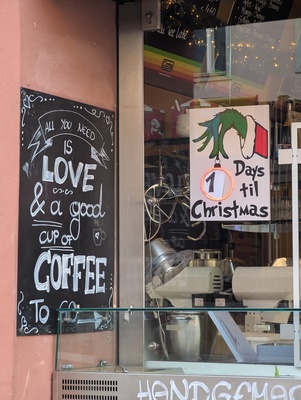 ALL YOU NEED
IS
LOVE
& a good
CUP OF
COFFEE
TO GO
1 Days
til
Christmas
HANDGEMA